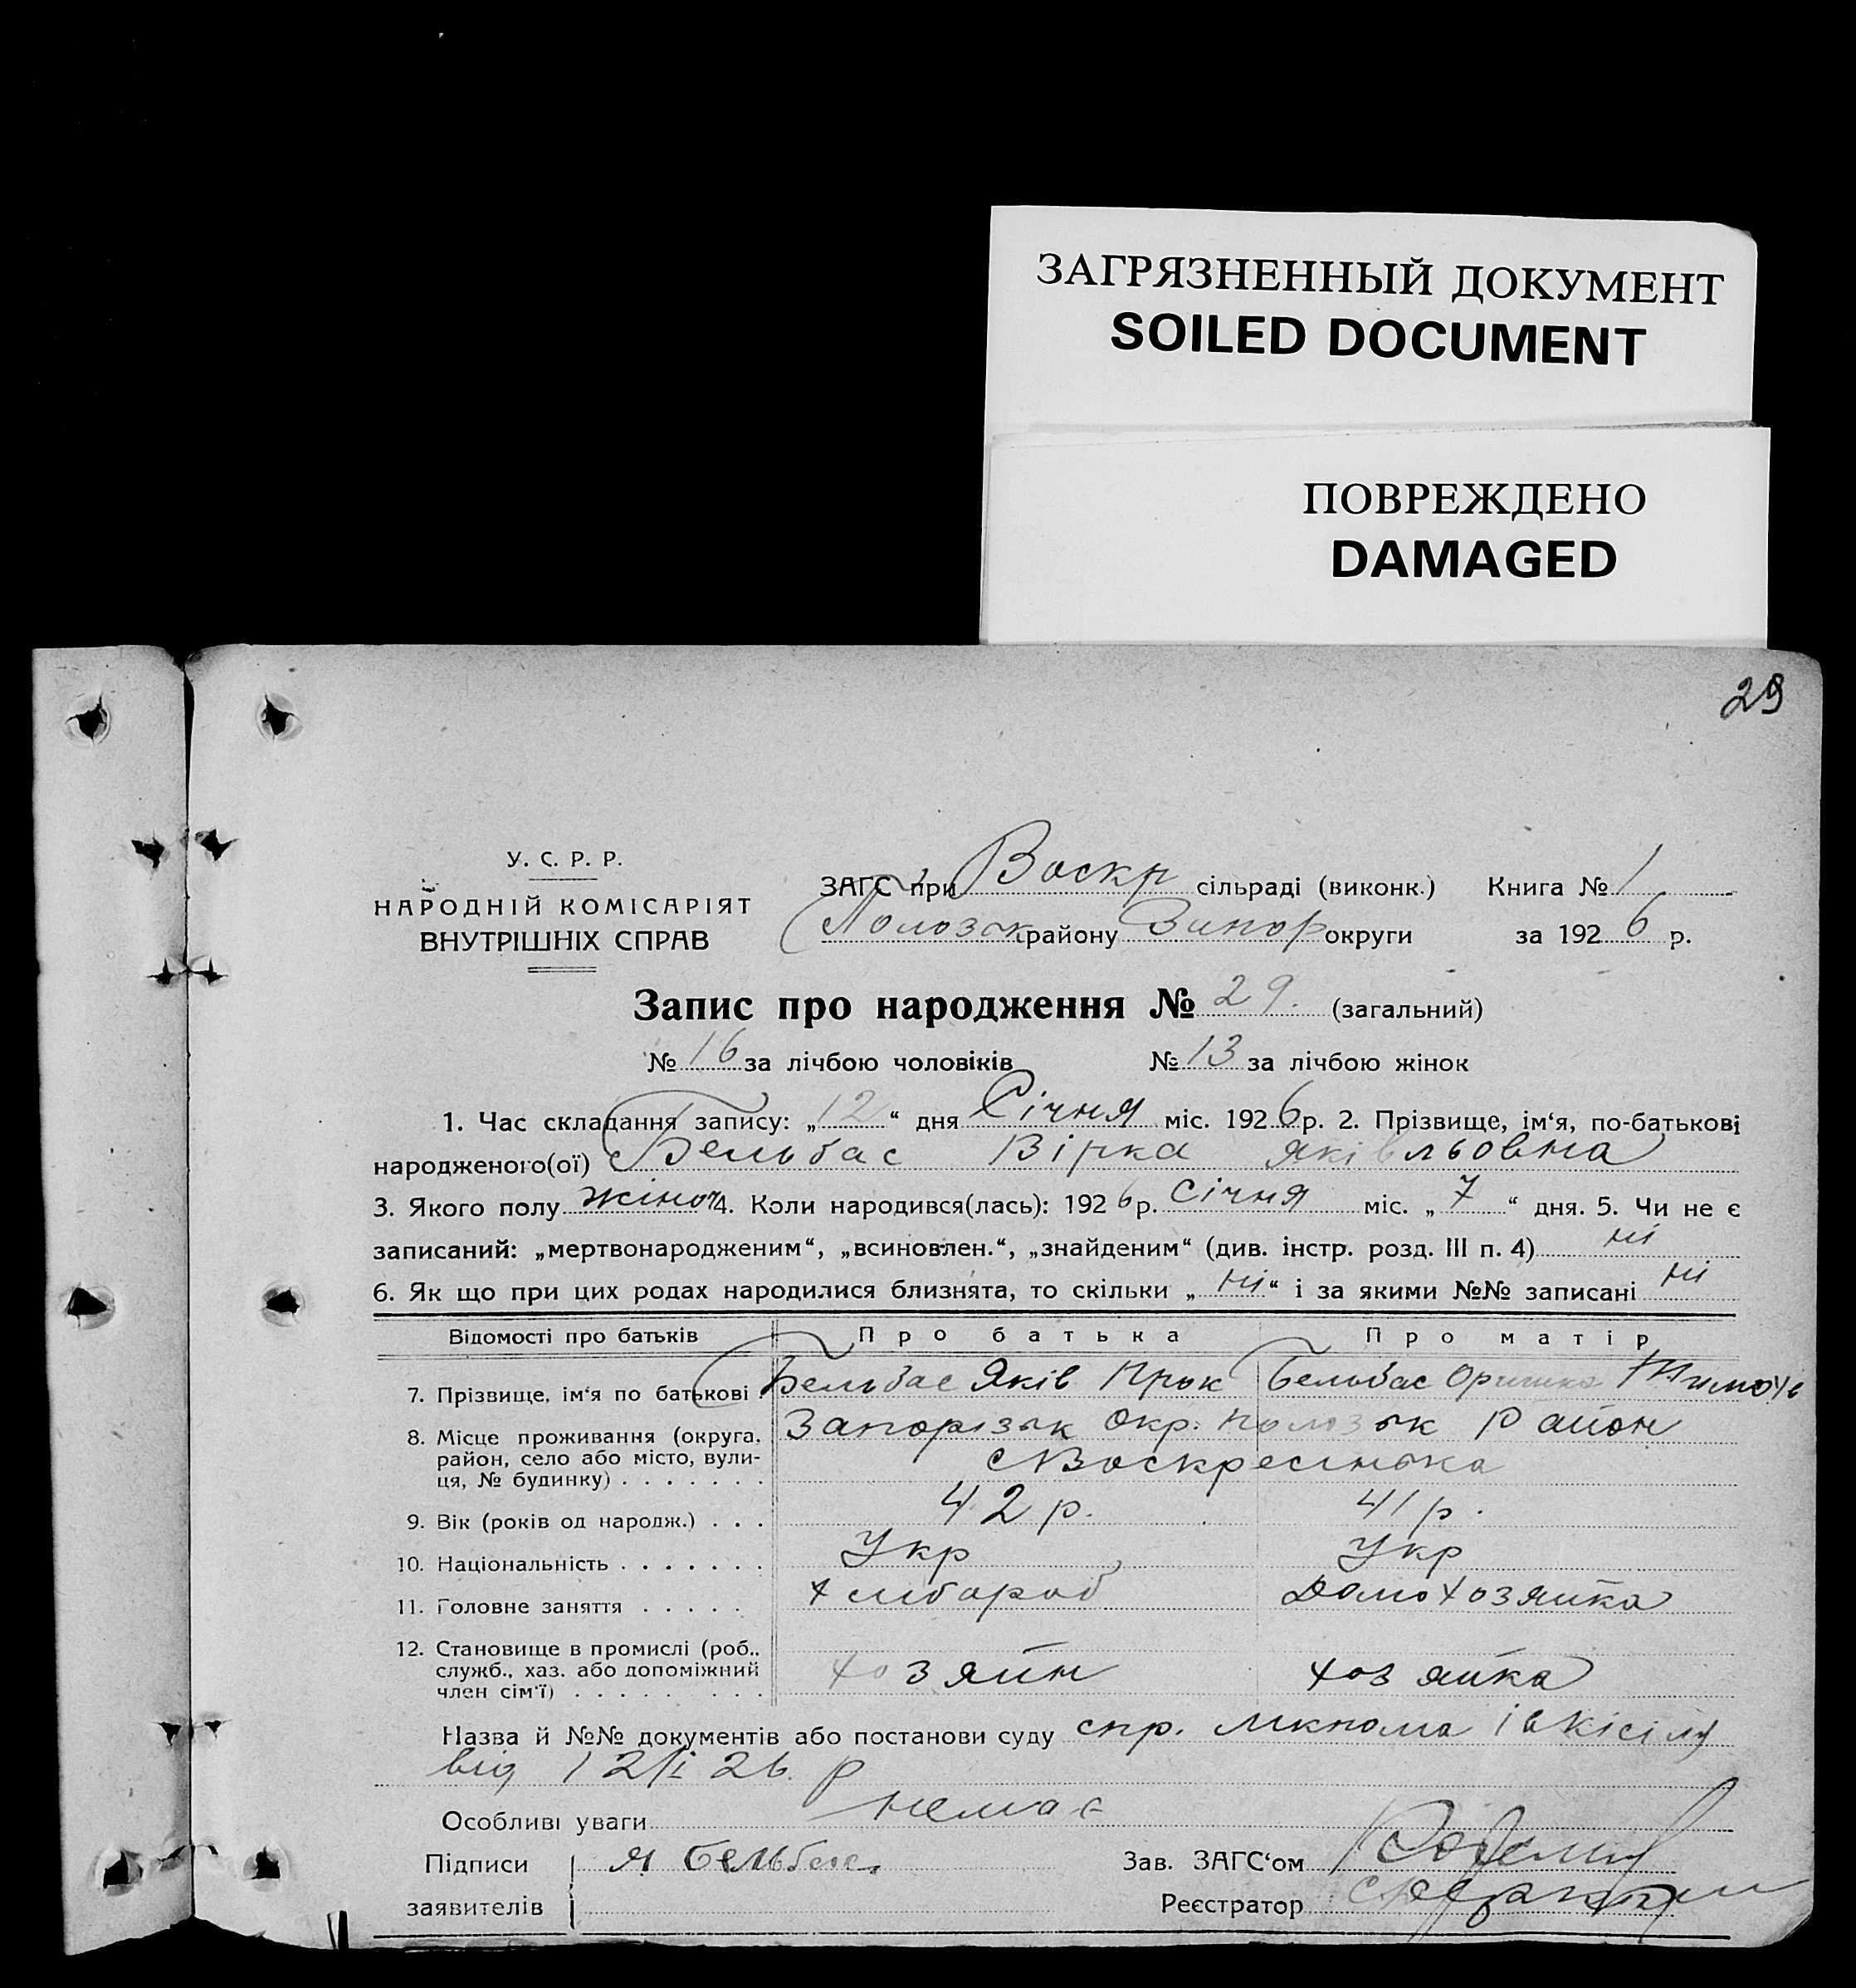 ЗАГРЯЗНЕННЫЙ ДОКУМЕНТ
SOILED DOCUMENT
ПОВРЕЖДЕНО
DAMAGED
29
У. С. Р. Р.
НАРОДНІЙ КОМІСАРІЯТ
ВНУТРІШНІХ СПРАВ
ЗАГС при Воскр сільраді (виконк.) Книга № 1
Полозьк району Запор округи за 1926 р.
Запис про народження № 29. (загальний)
№ 16 за лічбою чоловіків № 13 за лічбою жінок
1. Час складання запису: „12“ дня Січня міс. 1926 р. 2. Прізвище, ім‘я, по-батькові
народженого(ої) Бельбас Вірка Яківльовна
3. Якого полу жіноч 4. Коли народився(лась): 1926 р. Січня міс. „7“ дня. 5. Чи не є
записаний: „мертвонародженим“, „всиновлен.“, „знайденим“ (див. інстр. розд. III п. 4) ні
6. Як що при цих родах народилися близнята, то скільки „ні“ і за якими №№ записані ні
Відомості про батьків Про батька Про матір
7. Прізвище, ім‘я по батькові Бельбас Яків Прок Бельбас Оришка Тимоф
8. Місце проживання (округа, Запорізьк Окр. Полозьк Район
район, село або місто, вули- с Воскресінька
ця, № будинку) . . . . . . .
9. Вік (років од народж.) . . . 42 р. 41 р.
10. Національність . . . . . . . Укр Укр
11. Головне заняття . . . . . Хлібороб Домохозяйка
12. Становище в промислі (роб.,
служб., хаз. або допоміжний хозяйн хозяйка
член сім‘ї) . . . . . . . .
Назва й №№ документів або постанови суду спр.
від 12/I 26. р
Особливі уваги немає
Підписи Я Бельбас Зав. ЗАГС‘ом
заявителів Реєстратор